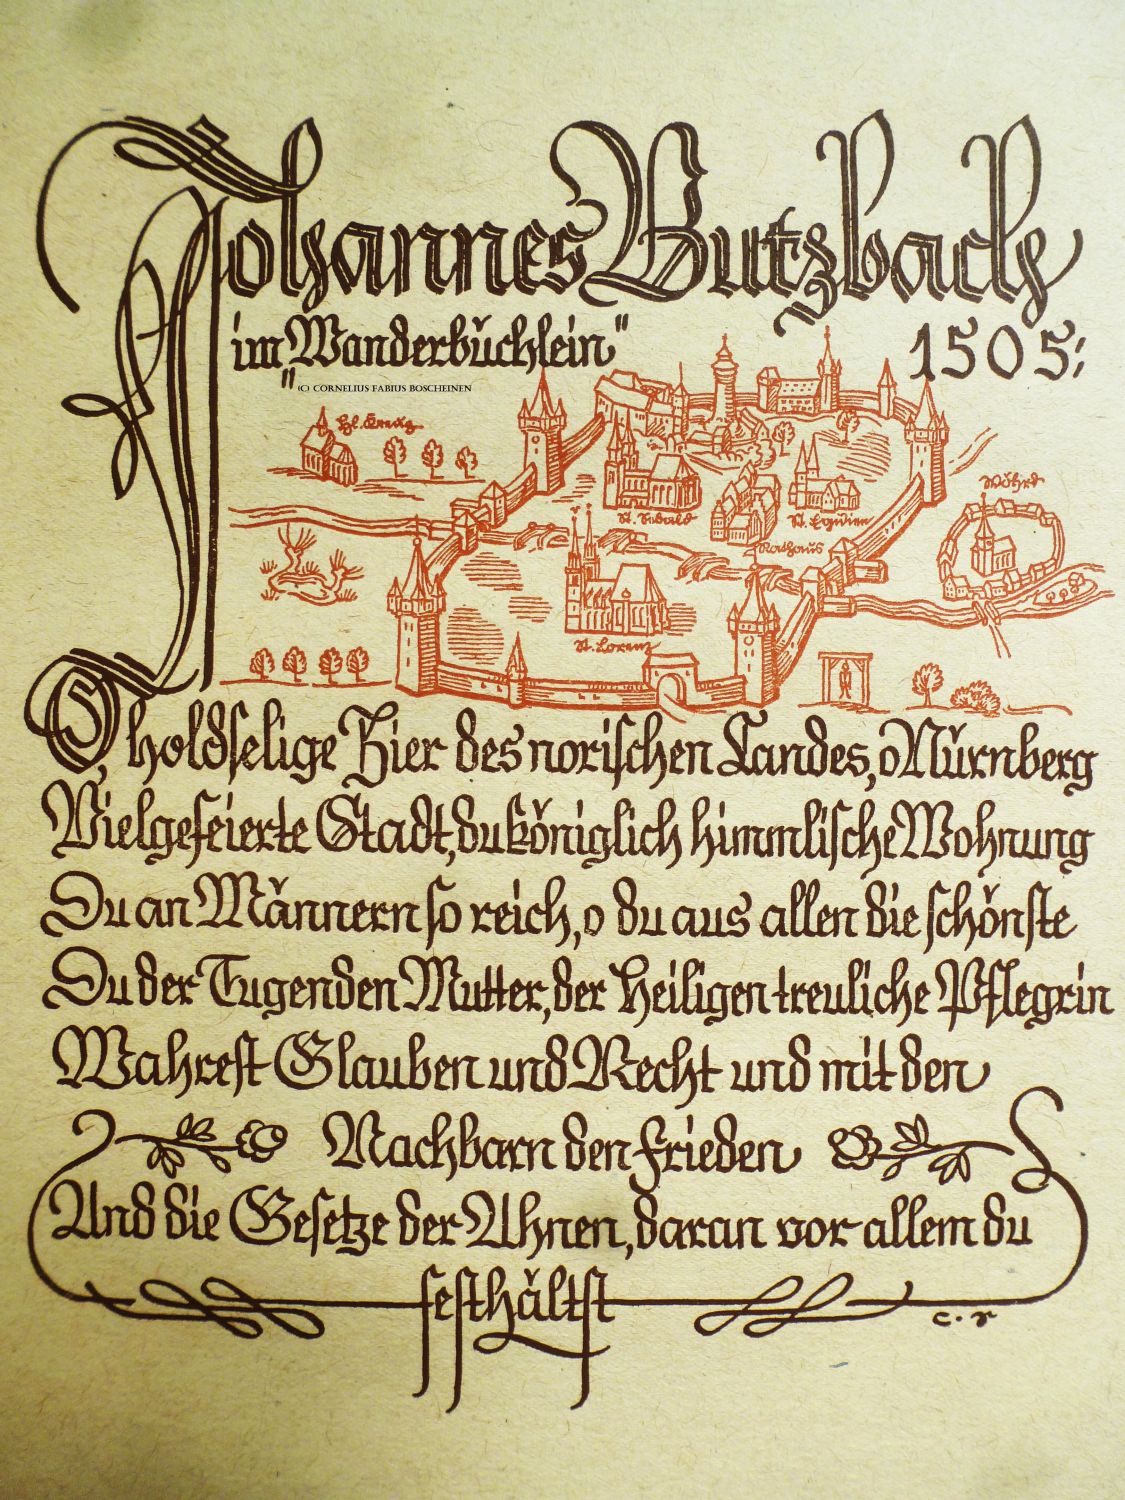 Johannes Butzbach
im „Wanderbüchlein"
1505:
(C) CORNELIUS FABIUS BOSCHEINEN
Hl. Kreuz
Wöhrd
St. Sebald
St. Egidien
Rathaus
St. Lorenz
O, holdselige Zier des norischen Landes, o Nürnberg
Vielgefeierte Stadt, du königlich himmlische Wohnung
Du an Männern so reich, o du aus allen die schönste
Du der Tugenden Mutter, der Heiligen treuliche Pflegrin
Wahrest Glauben und Recht und mit den
Nachbarn den Frieden
Und die Gesetze der Ahnen, daran vor allem du
festhältst
c. r